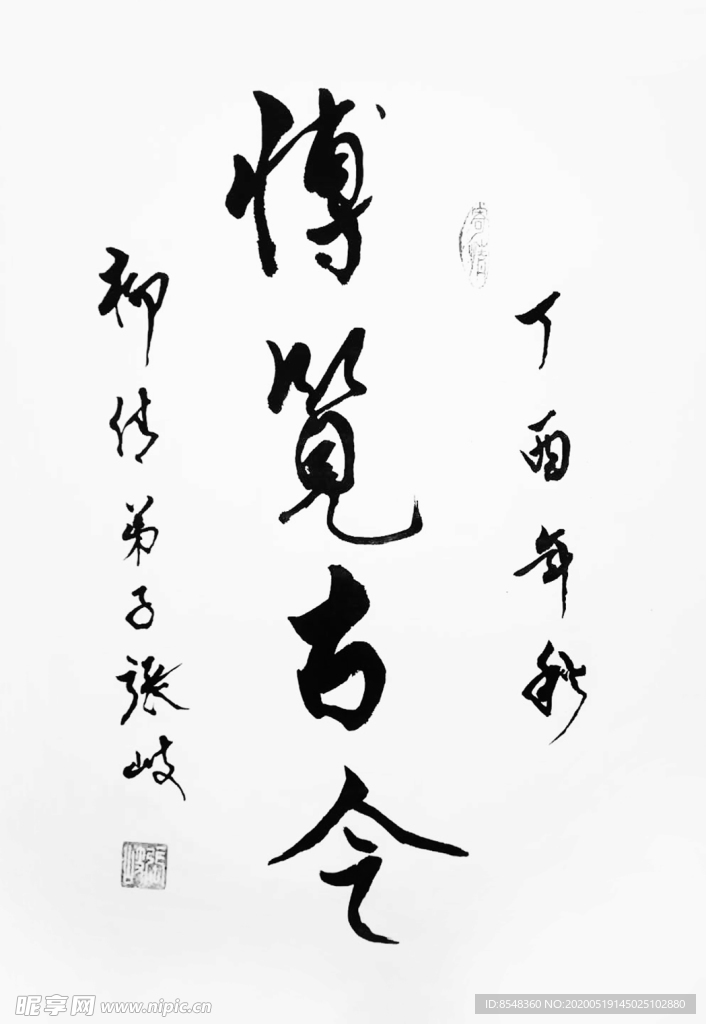 丁酉年秋
博覽古今
柳倩弟子張岐
張岐
昵享网 www.nipic.cn
ID:8548360 NO:20200519145025102880